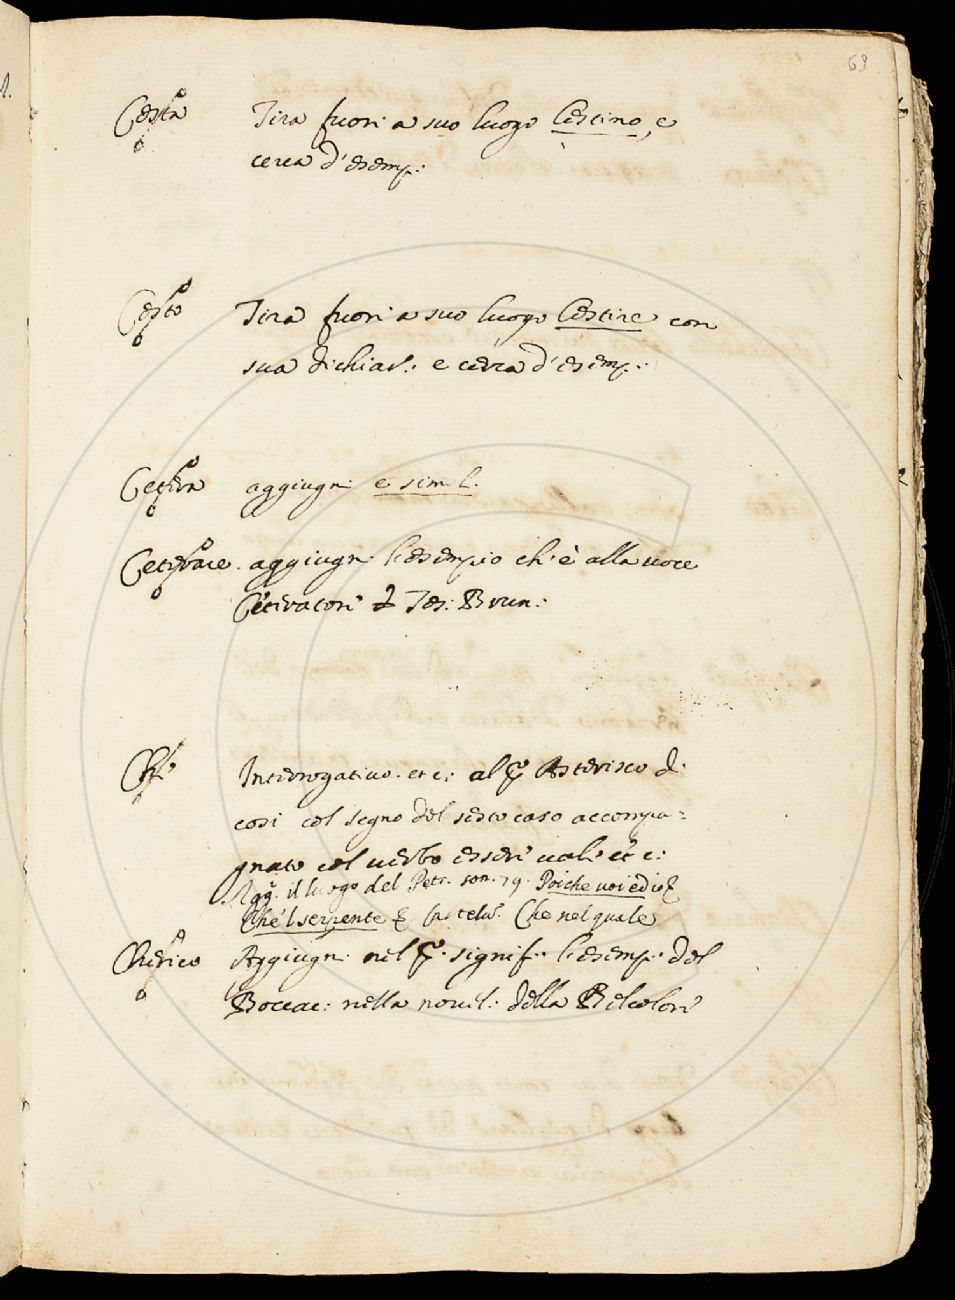 69
Cesta Tira fuori a suo luogo Cestino, e
cerca d'esemp:
Cesto Tira fuori a suo luogo Cestire con
sua dichiar: e cerca d'esemp:
Cetera aggiugni e simil.
aggiugn: l'esempio ch'è alla voce
Ceteratori Tes: Brun:
Che Interrogativo. et c: al Asterisco
cosi col segno del sesto caso accompa=
gnato col verbo essere vale et c:
Agg. il luogo del Petr. son. 79. Poiche voi ed io
Che'l serpente Che nel quale
Cherico Aggiugn: nel signif: l'esemp: del
Boccac: nella novel: della Belcolore